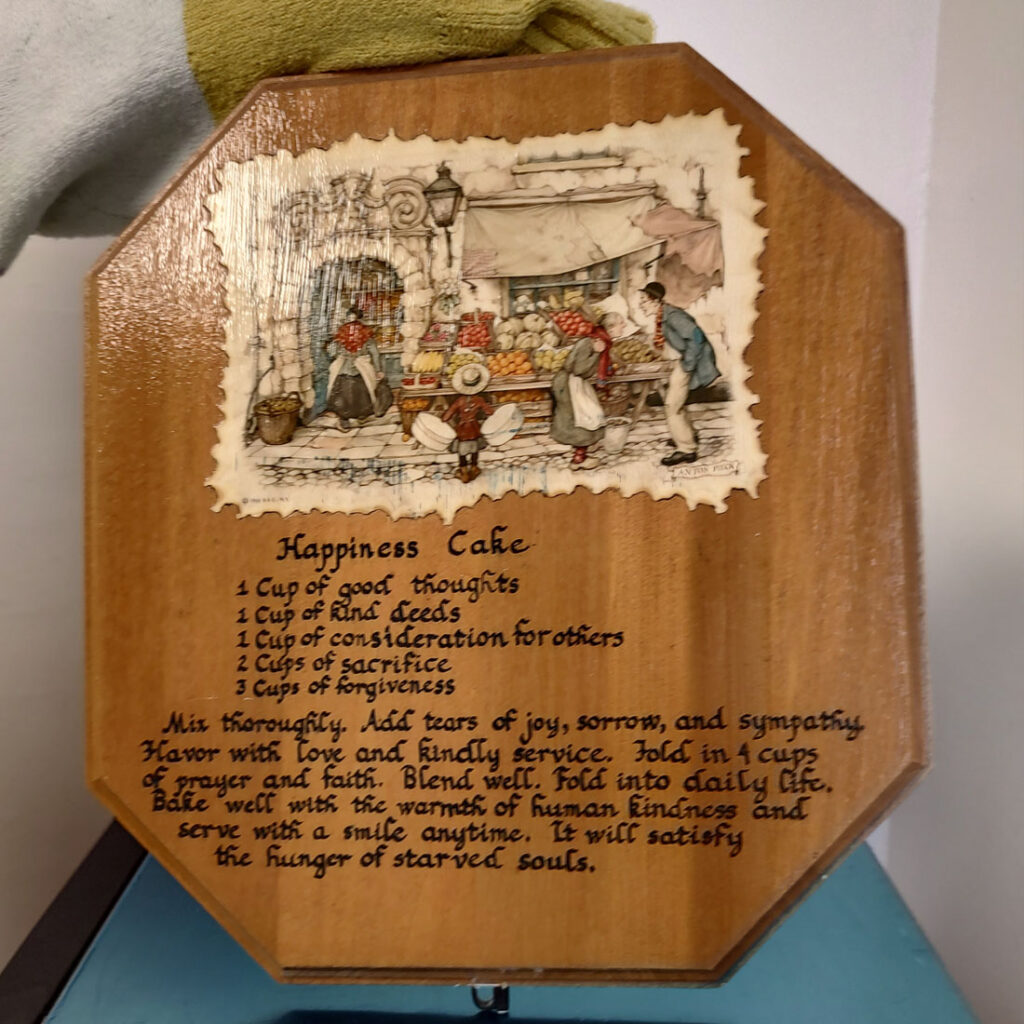 ANTON PIECK
Happiness Cake
1 Cup of good thoughts
1 Cup of kind deeds
1 Cup of consideration for others
2 Cups of sacrifice
3 Cups of forgiveness
Mix thoroughly. Add tears of joy, sorrow, and sympathy.
Flavor with love and kindly service. Fold in 4 cups
of prayer and faith. Blend well. Fold into daily life.
Bake well with the warmth of human kindness and
serve with a smile anytime. It will satisfy
the hunger of starved souls.